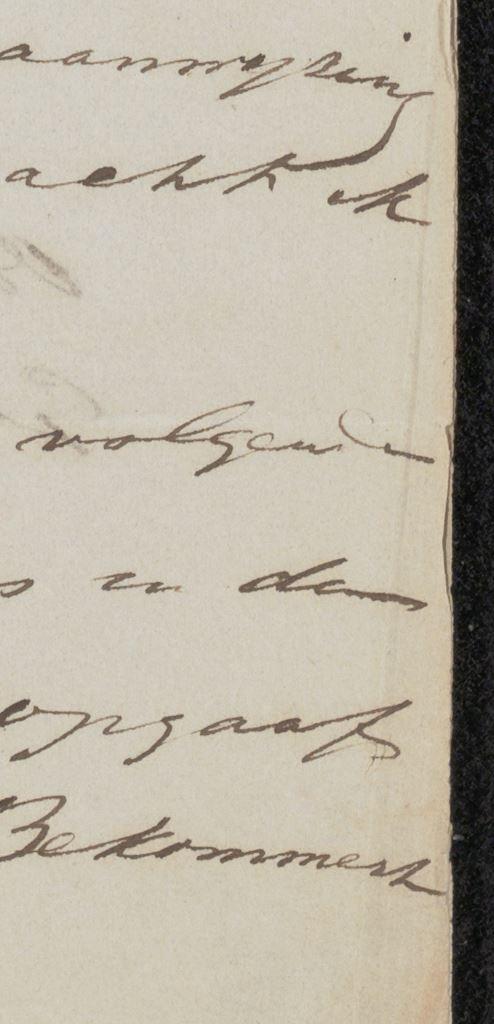 aanwyzing
acht ik
volgende
s in den
opgaaf
Bekommert